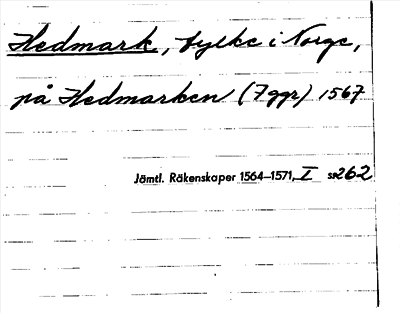 Hedmark, fylke i Norge,
på Hedmarken (7 ggr) 1567
Jämtl. Räkenskaper 1564—1571, I s. 262